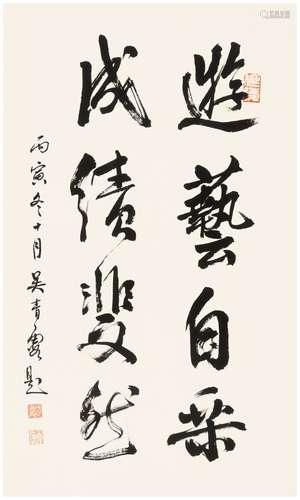 遊藝自樂
成績斐然
丙寅冬十月吴青霞題